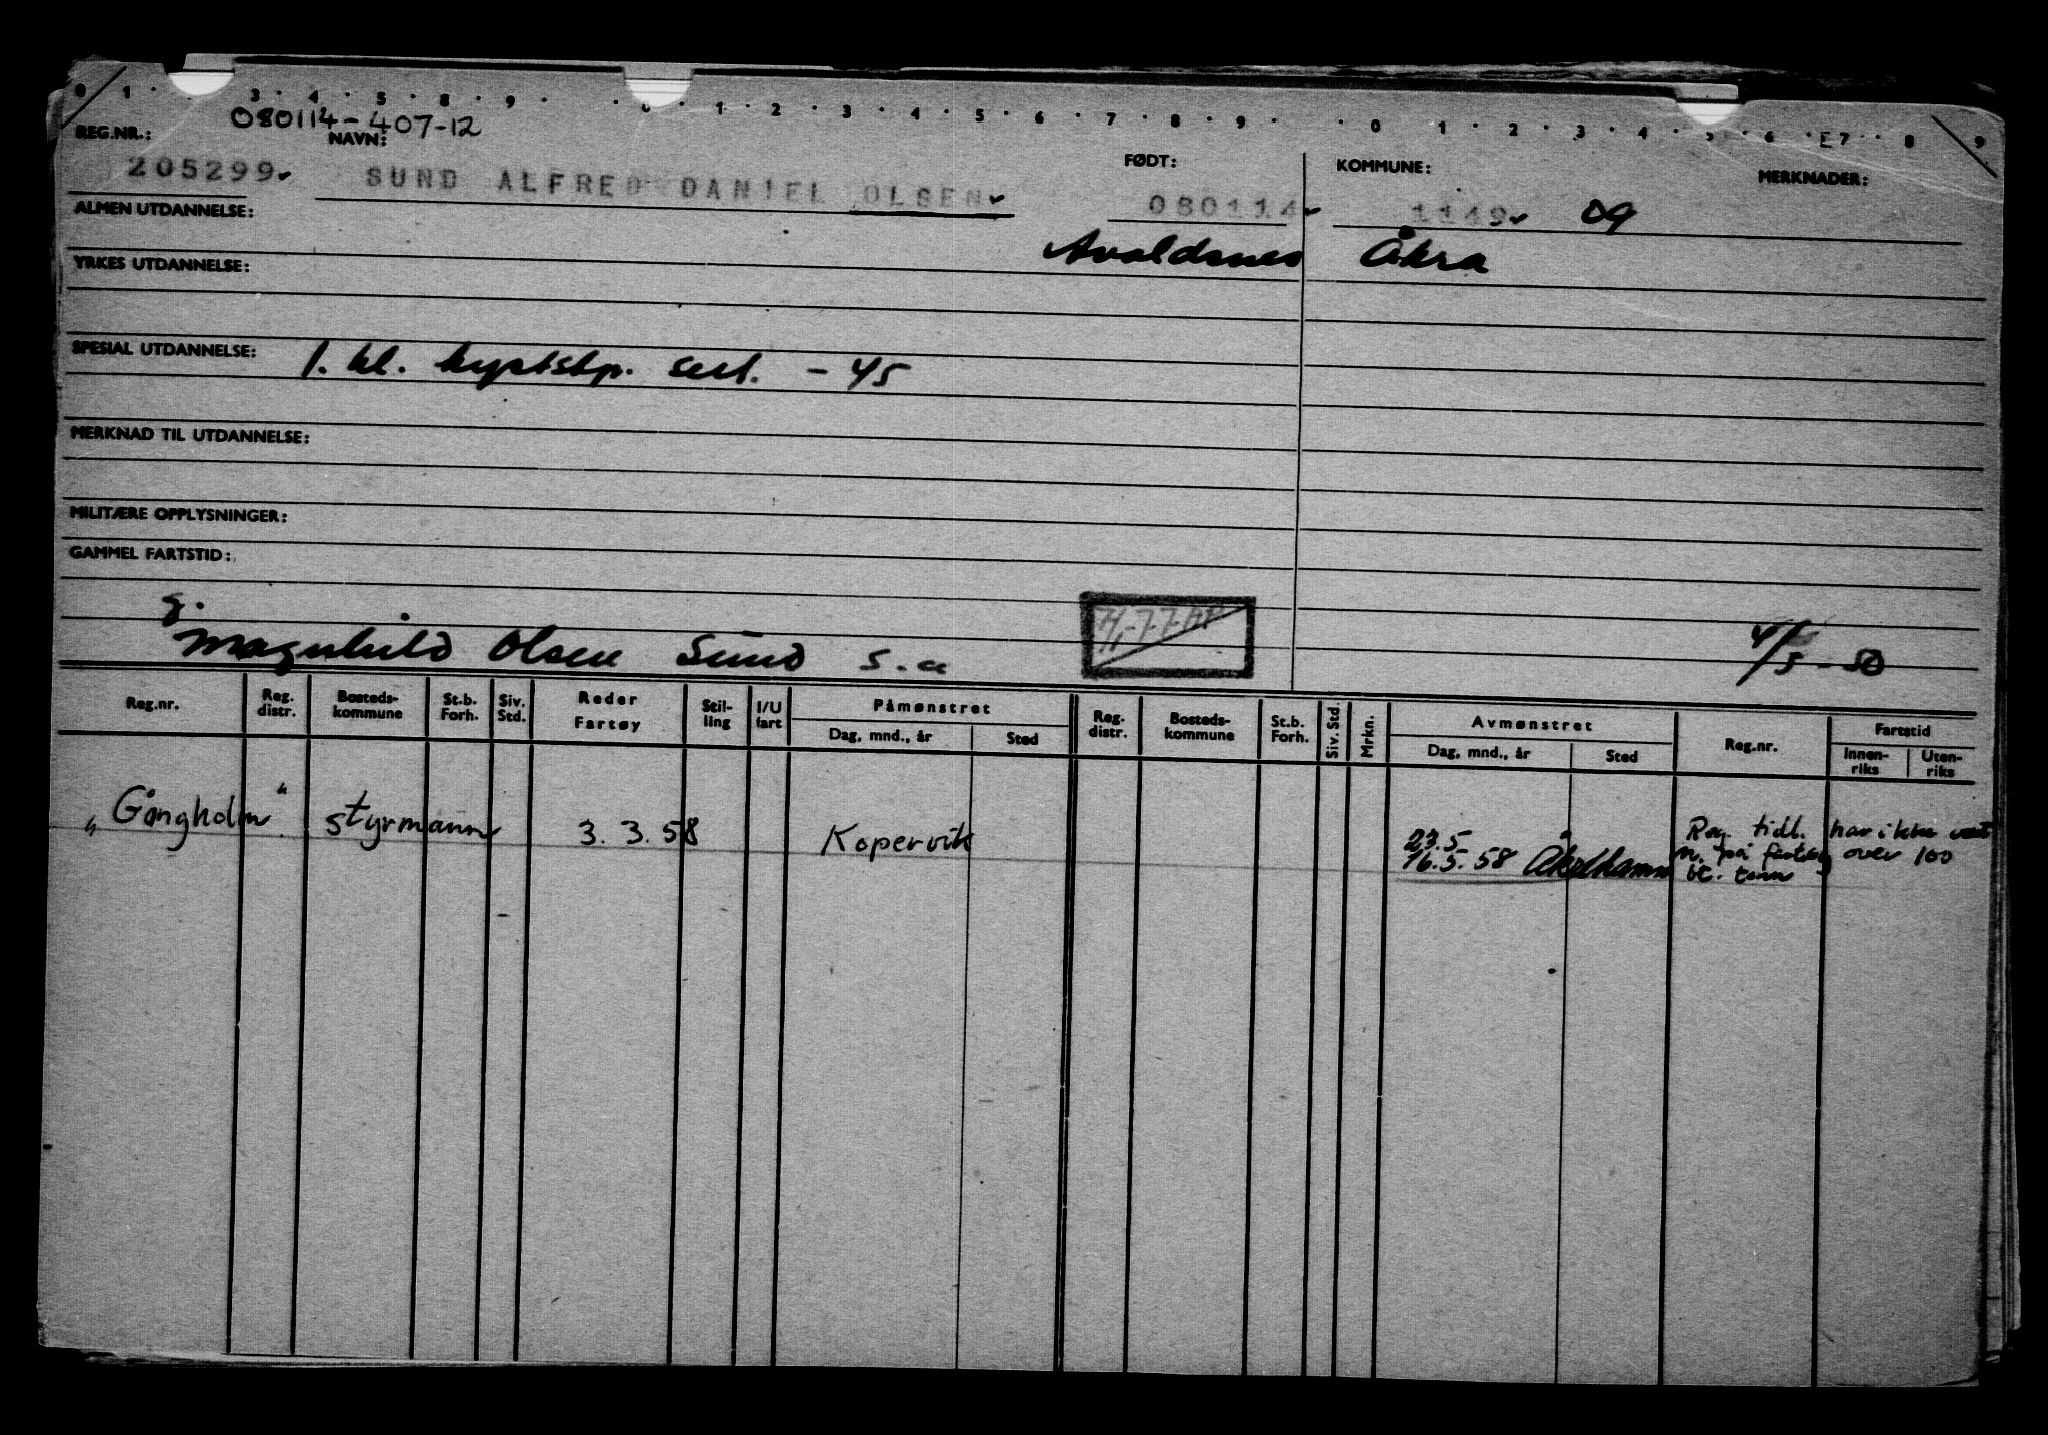 0 1 · · 3 · 4 · 5 · 8 · 9 · · 0 · 1 · 2 · 3 · 4 · 5 · 6 · 7 · 8 · 9 · · 0 1 · 2 · 3 · 4 · 5 · 6 · 7 · 8 9
080114-407-12
REG.NR.: NAVN: FØDT: KOMMUNE: MERKNADER:
205299 SUND ALFRED DANIEL OLSEN 080114 1149 09
ALMEN UTDANNELSE:
Avaldsnes Åkra
YRKES UTDANNELSE:
SPESIAL UTDANNELSE: 1. kl. kystskp. sert. - 45
MERKNAD TIL UTDANNELSE:
MILITÆRE OPPLYSNINGER:
GAMMEL FARTSTID:
g.
Magnhild Olsen Sund s.a 4/5-50
Reg.nr. Reg. distr. Bosteds-kommune St.b. Forh. Siv. Std. Reder Fartøy Stil-ling I/U fart Påmønstret Dag, mnd., år Sted Reg. distr. Bosteds-kommune St.b. Forh. Siv. Std. Mrkn. Avmønstret Dag, mnd., år Sted Reg.nr. Fartstid Innen-riks Uten-riks
"Gångholm" styrmann 3. 3. 58 Kopervik
23.5
16.5.58 Åkrehamn
tidl. har ikke vært
på fartøy over 100
bt. tonn